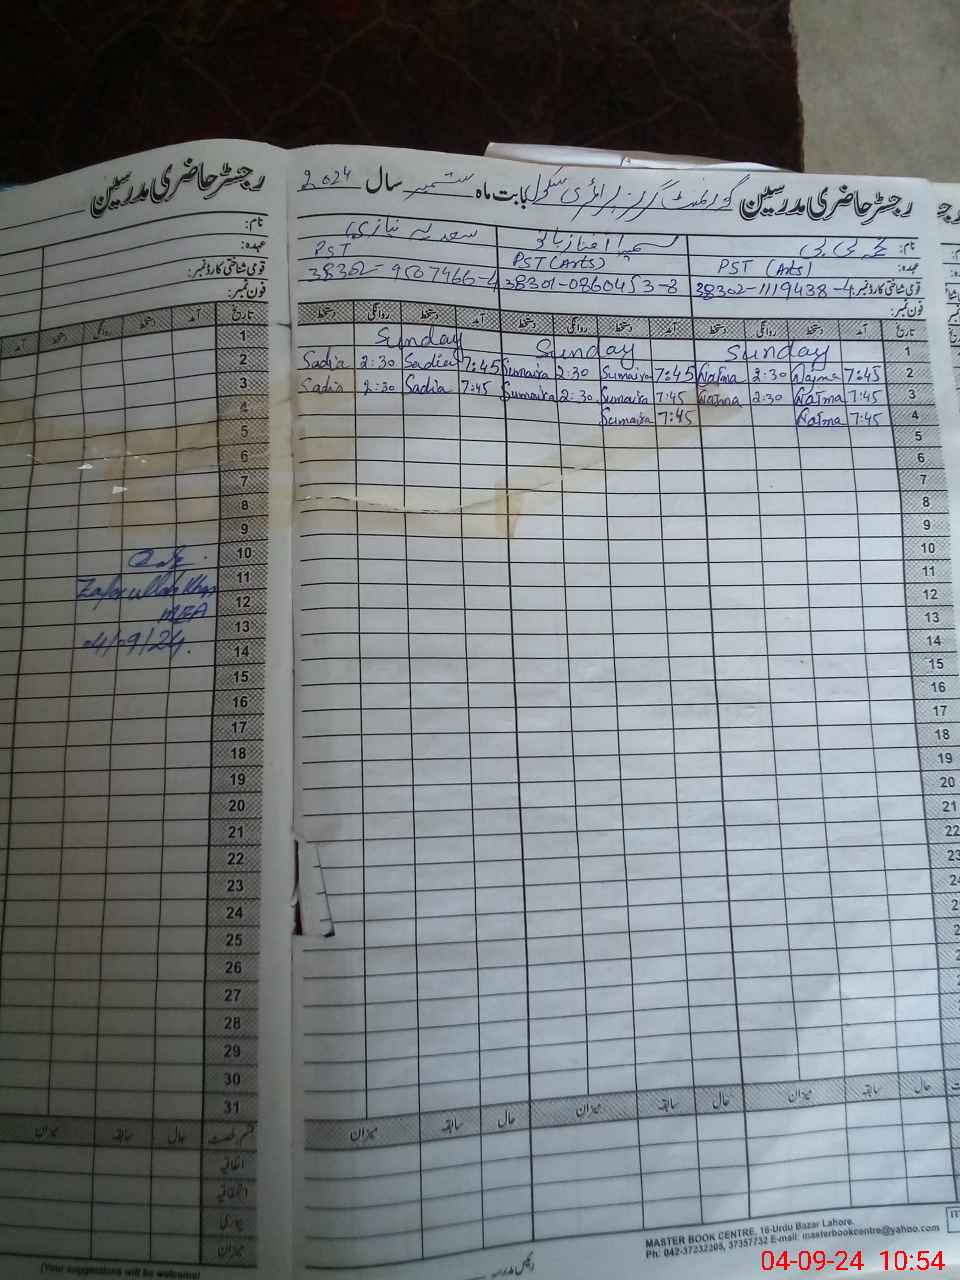 رجسٹر حاضری مدرسین گورنمنٹ گرلز پرائمری سکول بابت ماہ ستمبر سال 2024
نام:
سمیرا افتاز بانو
سعدیہ نیازی
عہدہ: PST (Arts)
PST (Arts)
PST
قومی شناختی کارڈ نمبر: 38302-1119438-4
38301-0860453-8
38302-9507466-4
فون نمبر:
تاریخ آمد دستخط روانگی دستخط آمد دستخط روانگی دستخط آمد دستخط روانگی دستخط
1 Sunday Sunday Sunday
2 7:45 Najma 2:30 Najma 7:45 Sumaira 2:30 Sumaira 7:45 Sadia 2:30 Sadia
3 7:45 Najma 2:30 Najma 7:45 Sumaira 2:30 Sumaira 7:45 Sadia 2:30 Sadia
4 7:45 Najma 7:45 Sumaira
5
6
7
8
9
10
11
12
13
14
15
16
17
18
19
20
21
22
23
24
حال سابقہ میزان حال سابقہ میزان حال سابقہ میزان
MASTER BOOK CENTRE, 16-Urdu Bazar Lahore.
Ph: 042-37232305, 37357732 E-mail: masterbookcentre@yahoo.com
رجسٹر حاضری مدرسین
نام:
عہدہ:
قومی شناختی کارڈ نمبر:
فون نمبر:
تاریخ آمد دستخط روانگی دستخط آمد
1
2
3
4
5
6
7
8
9
10
11
12
13
14
15
16
17
18
19
20
21
22
23
24
25
26
27
28
29
30
31
Zafarullah Khan
MEA
04/09/24.
حال سابقہ میزان
اتفاقیہ
استحقاقیہ
بیماری
میزان
(Your suggestions will be welcome)
04-09-24 10:54